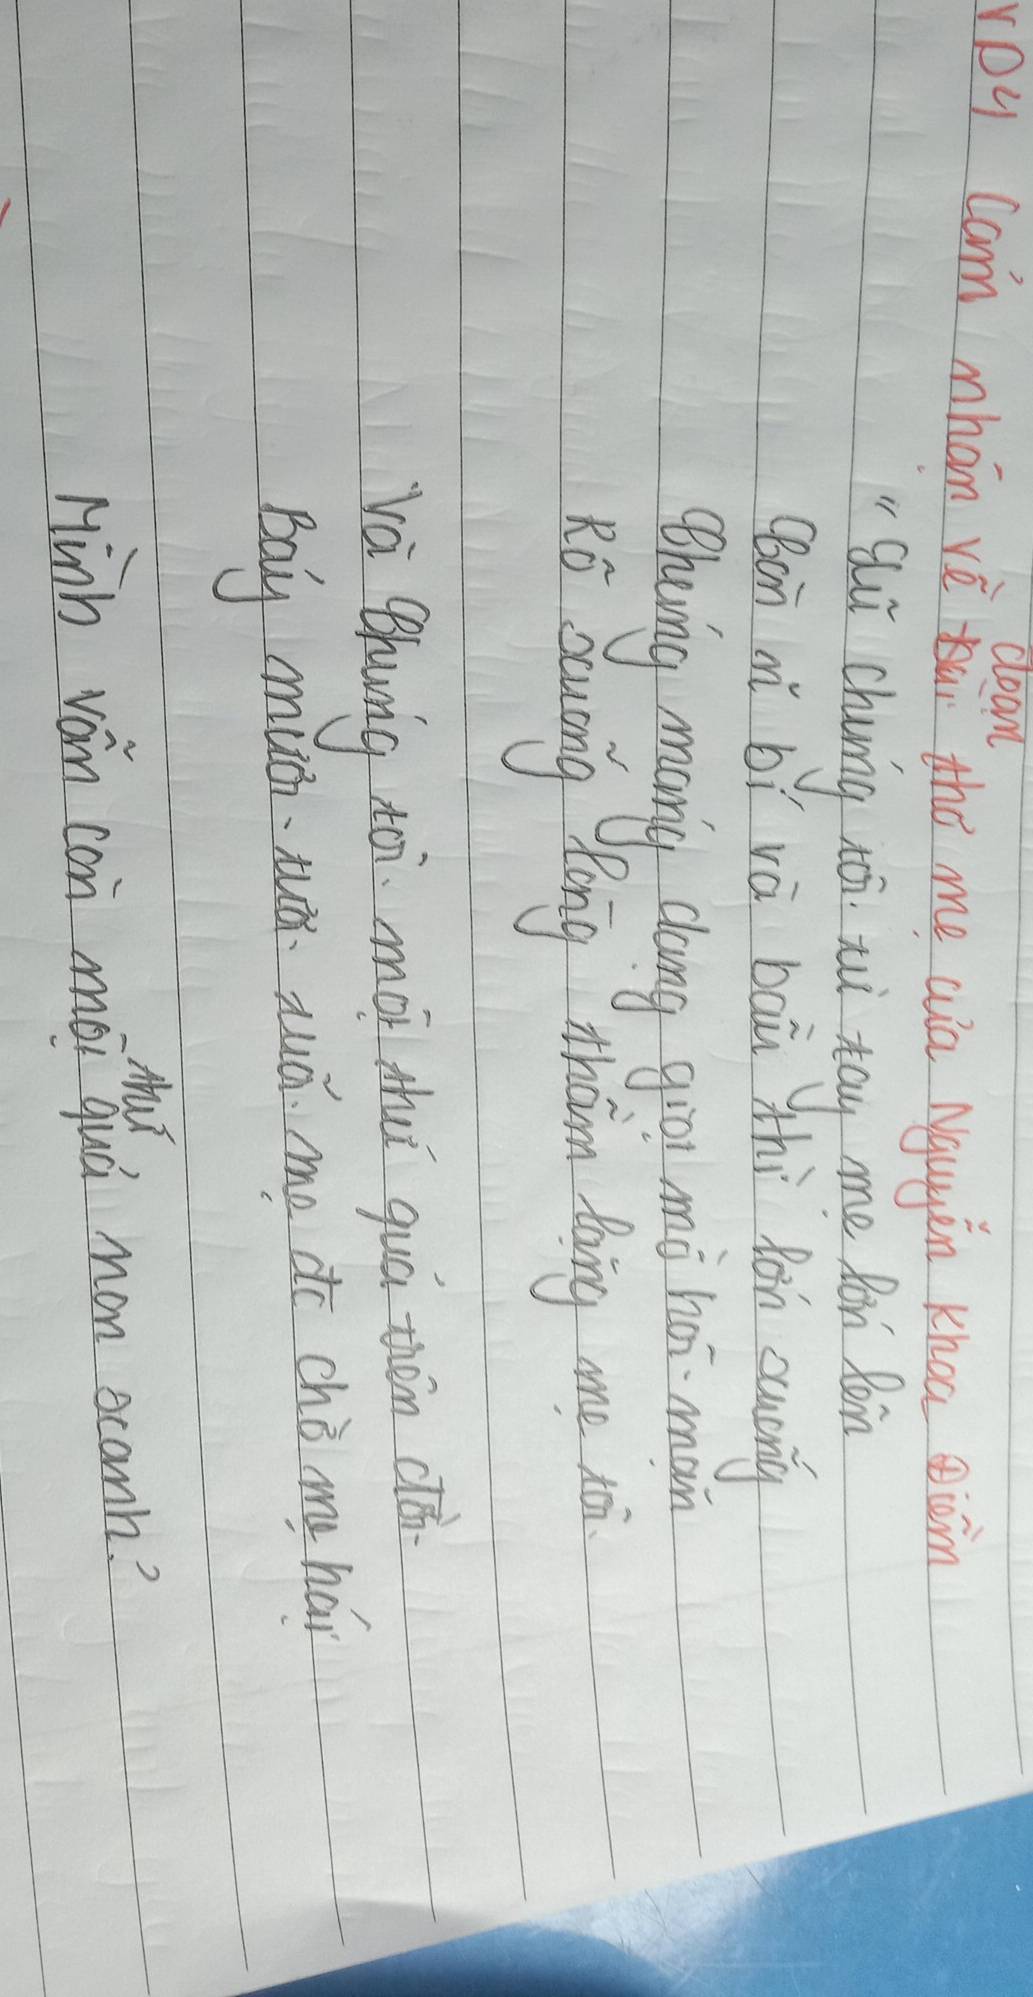 VD4 Cảm nhận về đoạn thơ mẹ của Nguyễn Khoa Điềm
"Lũ chúng tôi từ tay mẹ lớn lên
Còn n bí và bầu thì lớn xuống
Chúng mang dạng giọt mồ hôi mặn
Rỏ xuống lòng thầm lặng mẹ tôi.
Và chúng tôi một thứ quả trên đời
Bảy mươi tuổi mẹ đc chờ mẹ hái
Mình vẫn còn một thứ quả non xanh?